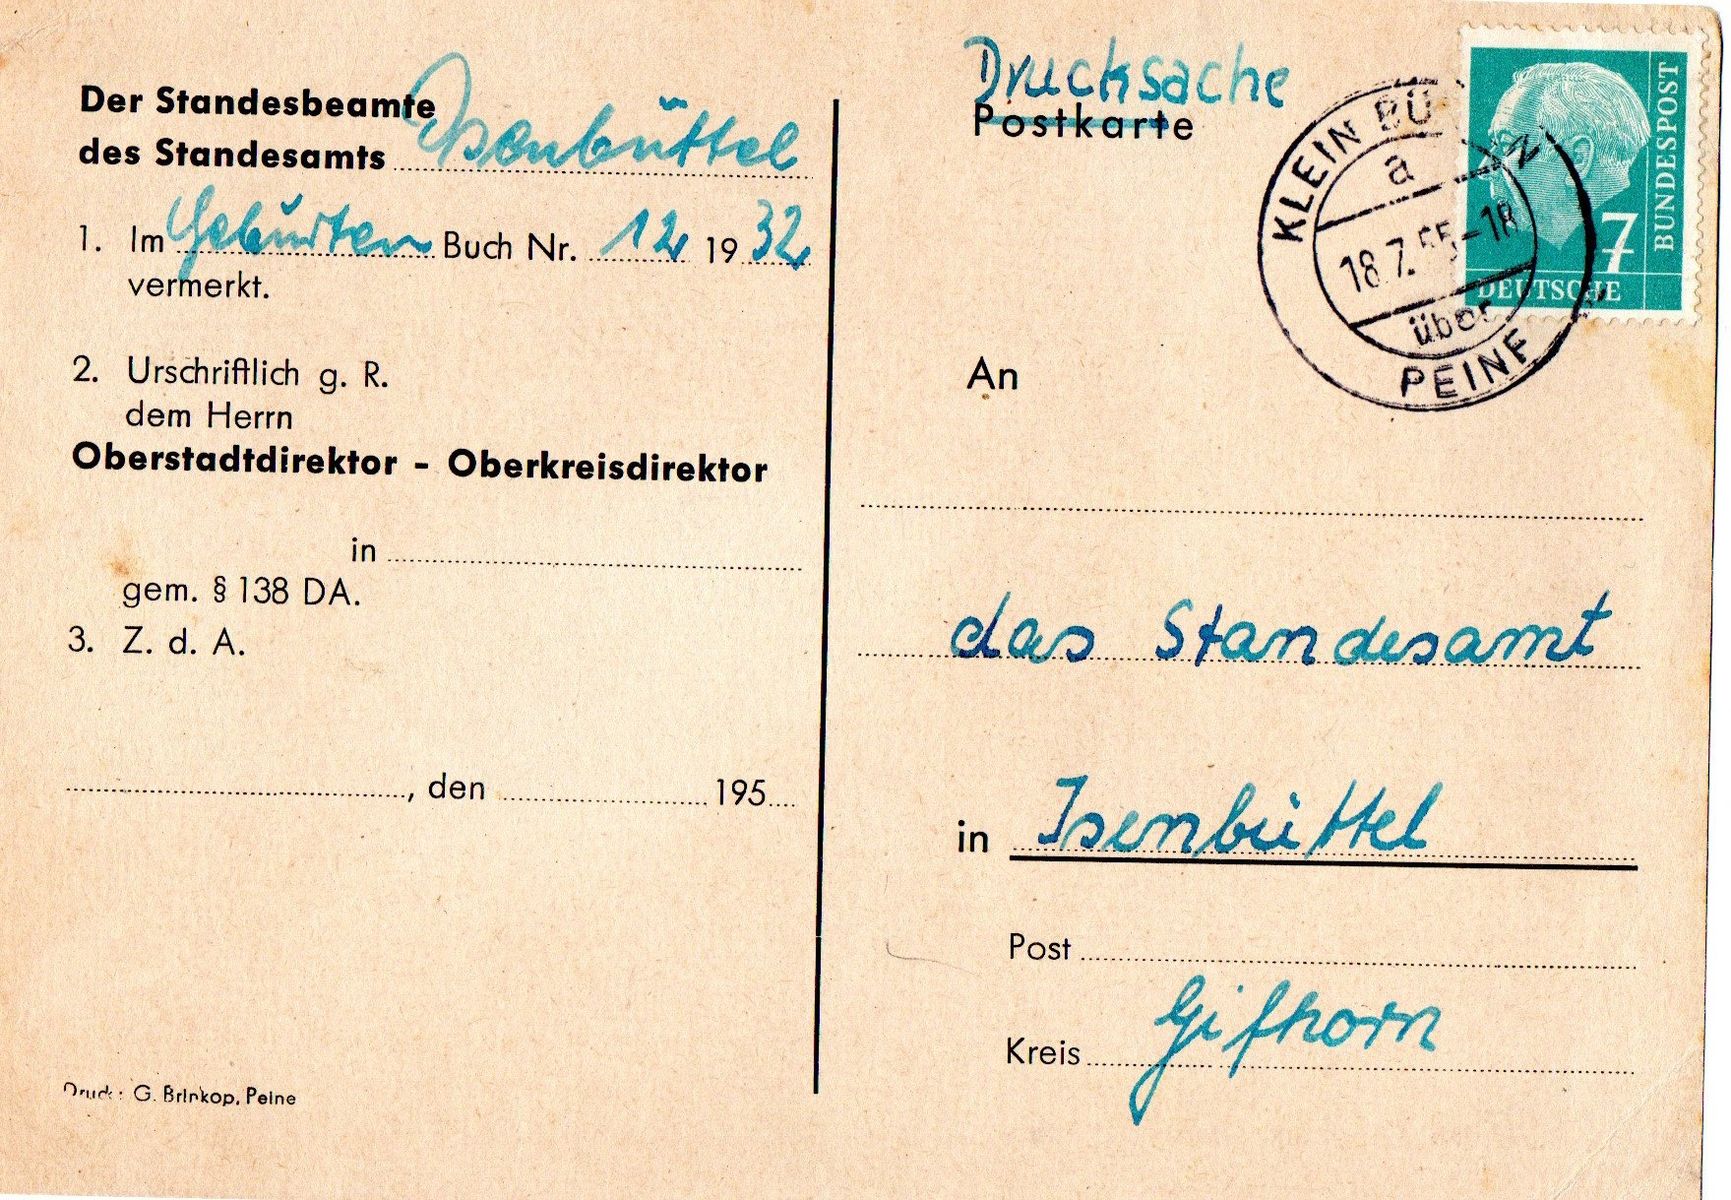 Der Standesbeamte
des Standesamts Isenbüttel
1. Im Geburten Buch Nr. 12 1932
vermerkt.
2. Urschriftlich g. R.
dem Herrn
Oberstadtdirektor - Oberkreisdirektor
in
gem. § 138 DA.
3. Z. d. A.
, den 195
Druck: G. Brinkop, Peine
Drucksache
Postkarte
KLEIN
a
18.7.55-18
über
PEINE
7
DEUTSCHE
BUNDESPOST
An
das Standesamt
in Isenbüttel
Post
Kreis Gifhorn